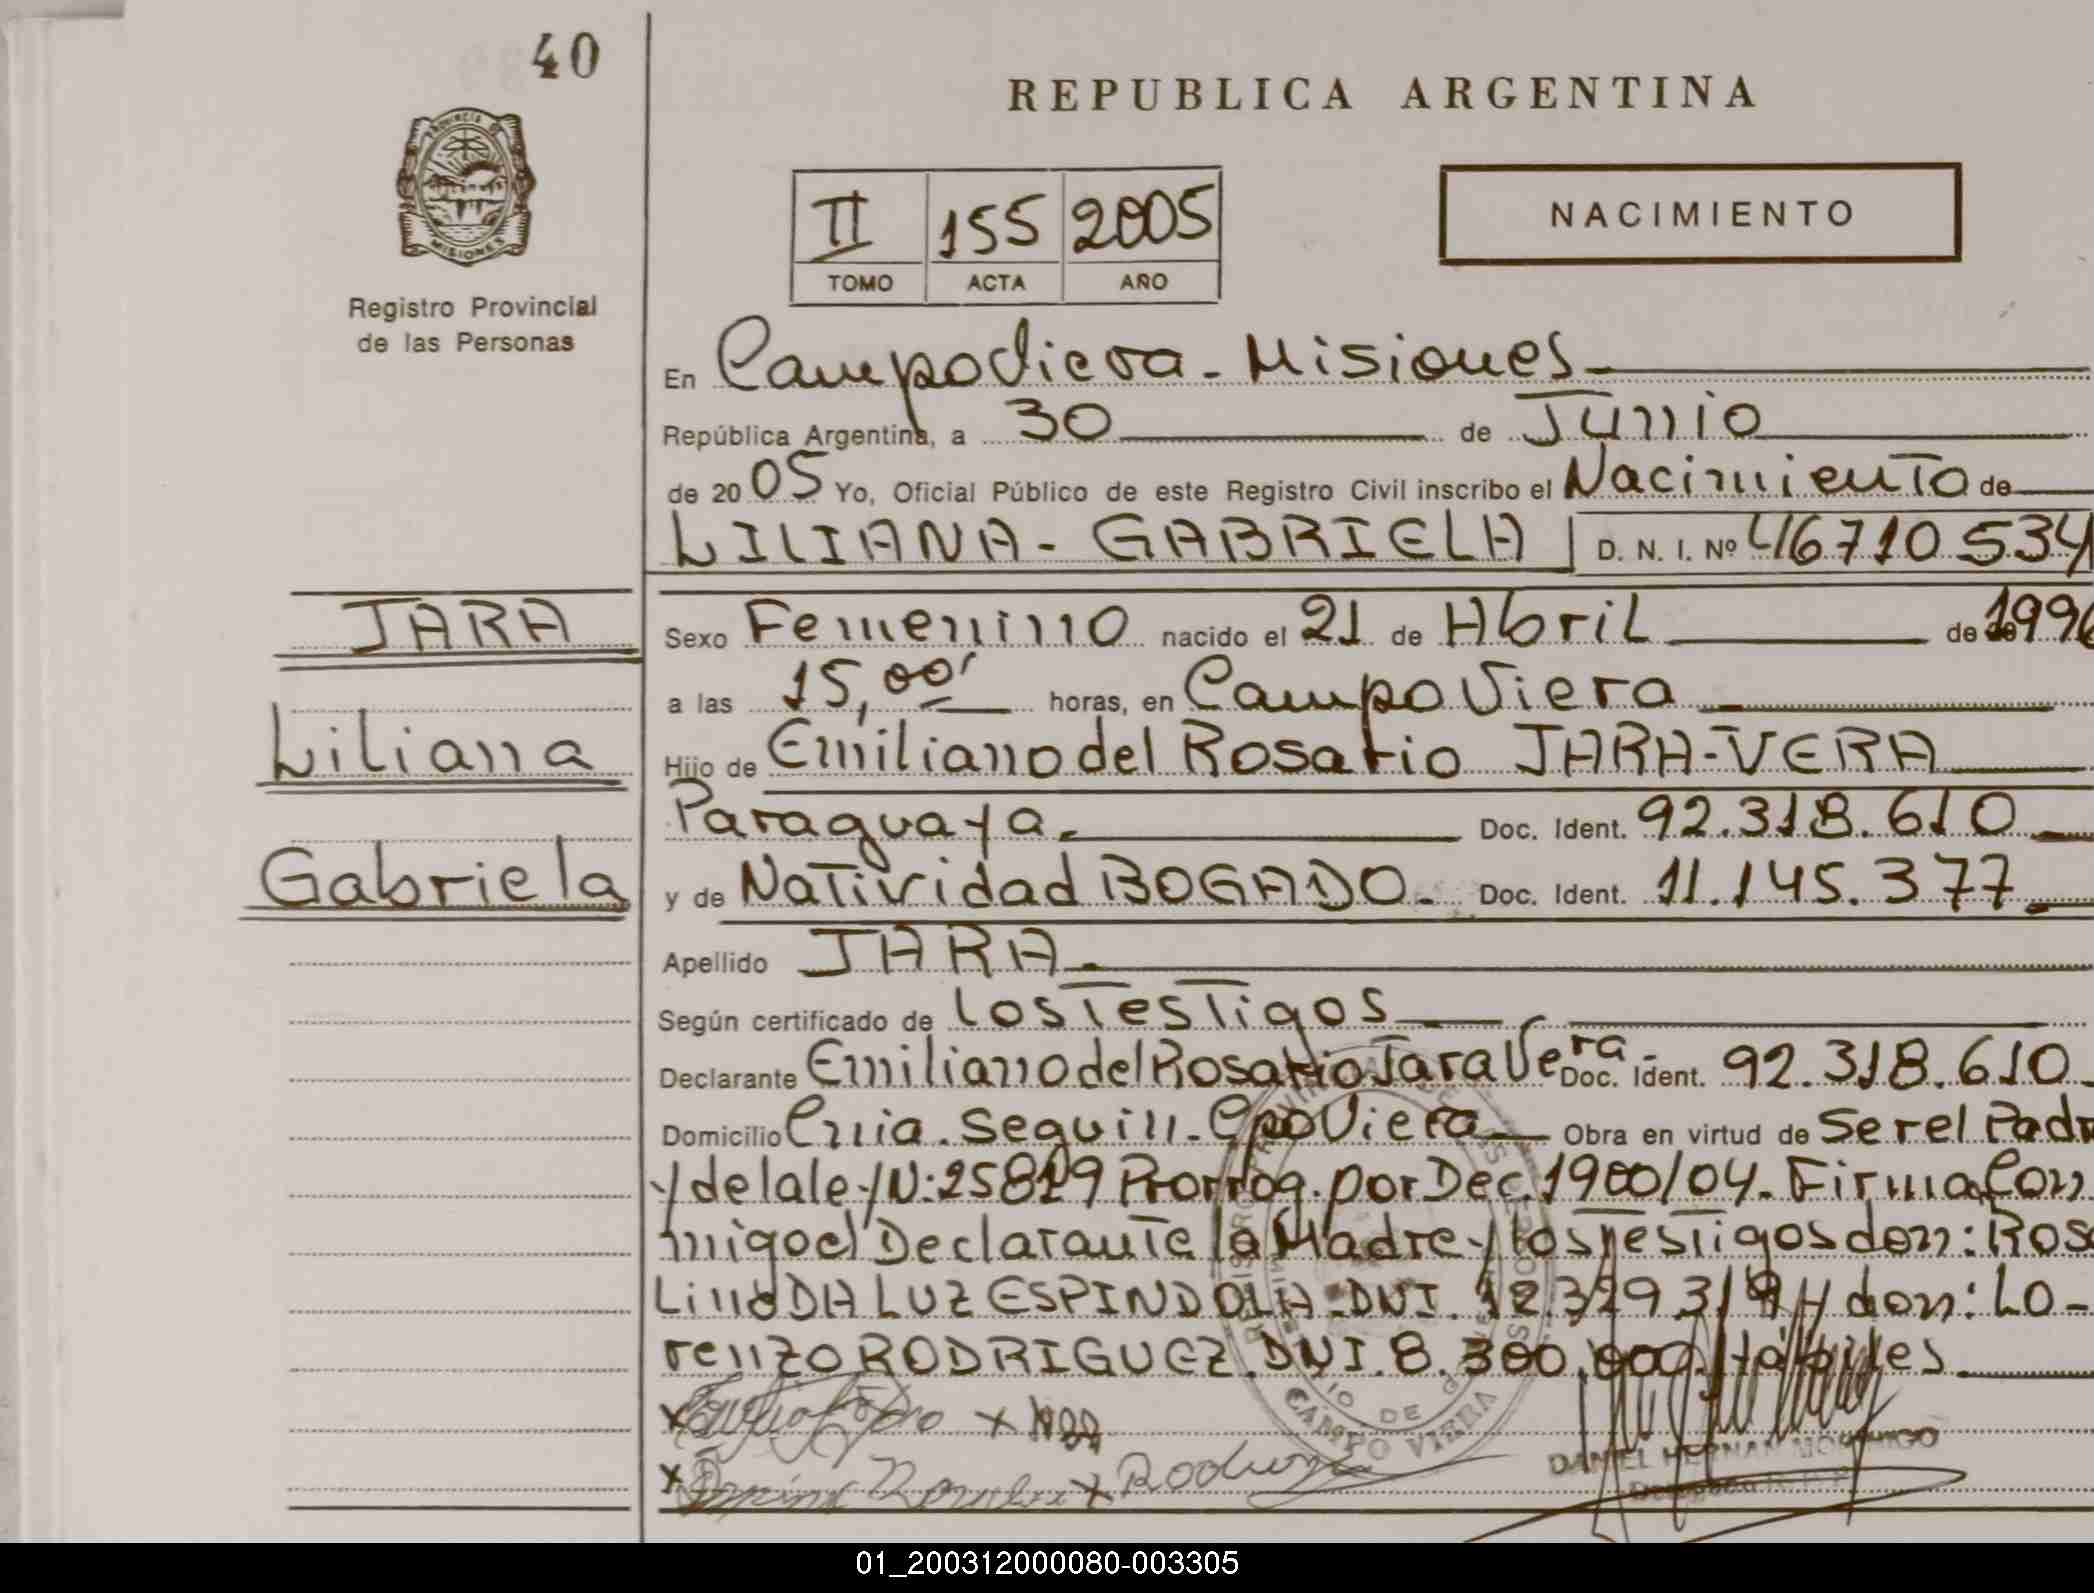 40
REPUBLICA ARGENTINA
PROVINCIA DE
MISIONES
Registro Provincial
de las Personas
II 155 2005
TOMO ACTA AÑO
NACIMIENTO
En Campo Viera - Misiones
República Argentina, a 30 de Junio
de 2005 Yo, Oficial Público de este Registro Civil inscribo el Nacimiento de
LILIANA - GABRIELA D. N. I. Nº 46710534
JARA
Liliana
Gabriela
Sexo Femenino nacido el 21 de Abril de 1996
a las 15,00' horas, en Campo Viera
Hijo de Emiliano del Rosario JARA-VERA
Paraguaya. Doc. Ident. 92.318.610
y de Natividad BOGADO. Doc. Ident. 11.145.377
Apellido JARA.
Según certificado de los Testigos
Declarante Emiliano del Rosario Jara Vera - Doc. Ident. 92.318.610
Domicilio Cnia. Seguin - Cpo Viera Obra en virtud de Ser el Padr
y de la ley N: 25819 Prorrog. por Dec. 1900/04. Firma Con
migo el Declarante la Madre y los Testigos don: Ros
Lino DA LUZ ESPINDOLA - DNI. 12.329.319 y don: Lo-
renzo RODRIGUEZ. DNI. 8.300.000. Hábiles
CAMPO VIERA
DANIEL HERNAN
01_200312000080-003305